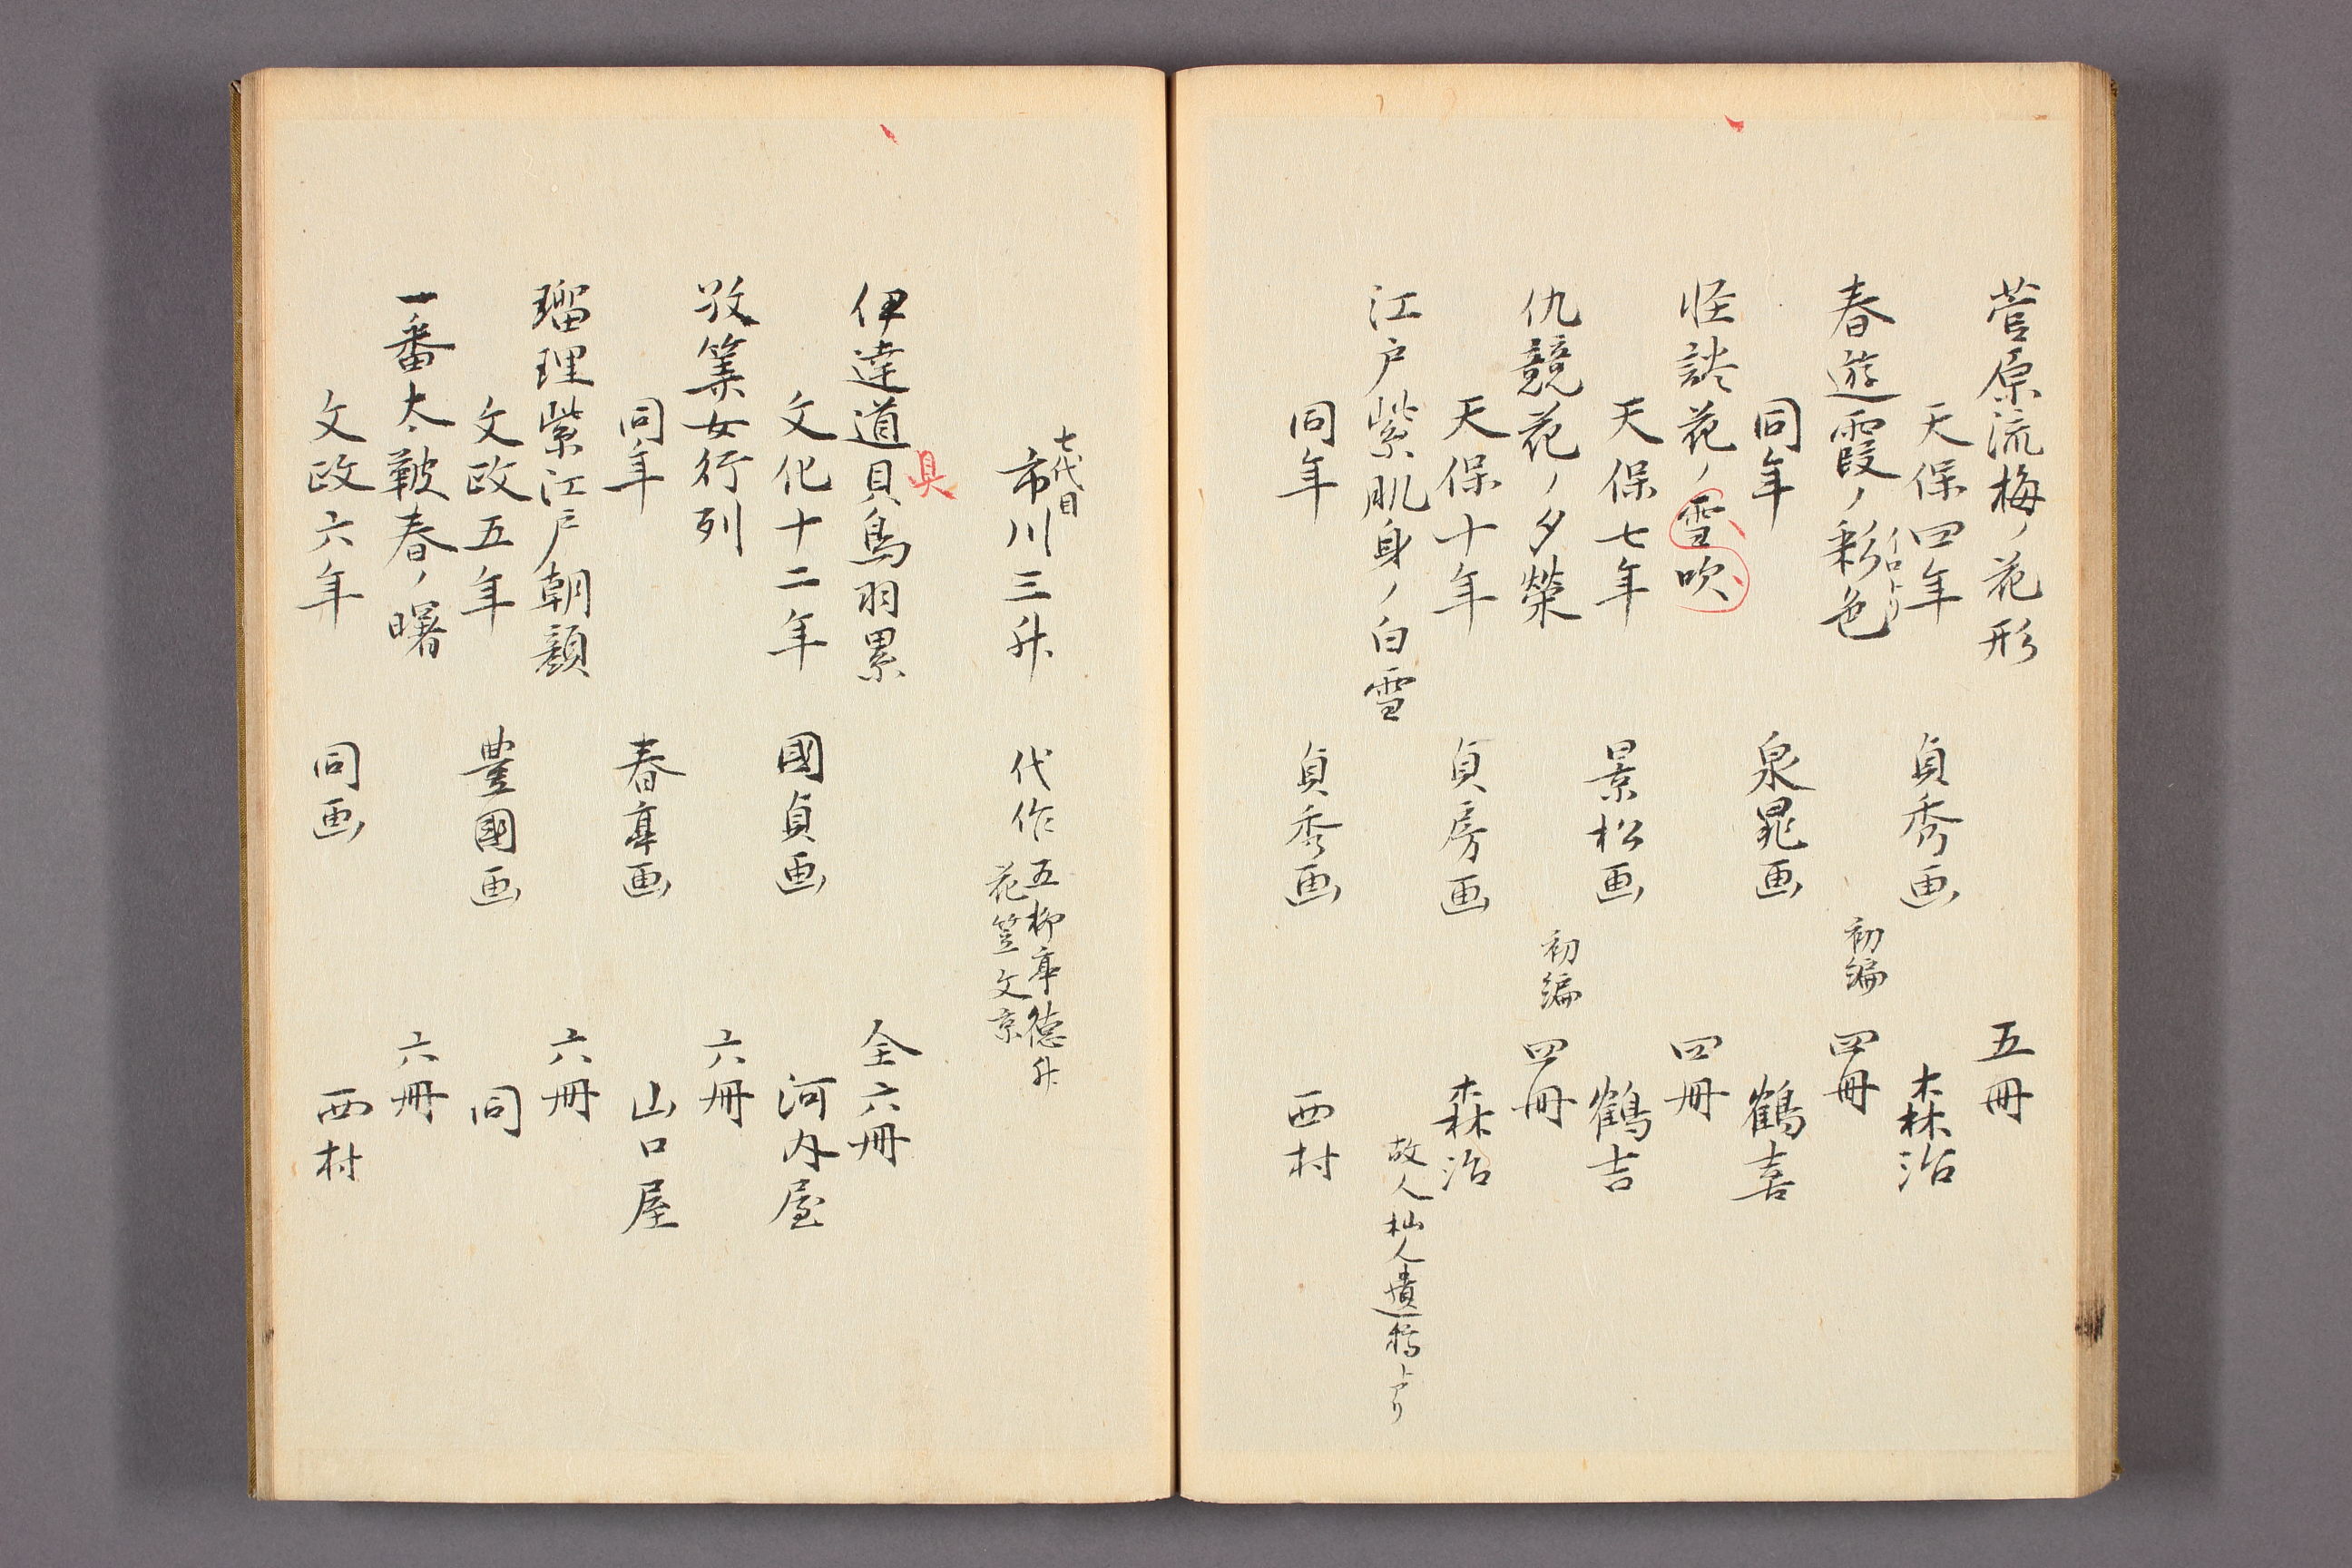 菅原流梅ノ花形　五冊
天保四年　貞秀画　森治
春遊霞ノ彩色　初編　四冊
イロトリ
同年　泉晁画　鶴喜
怪談花ノ雪吹　四冊
天保七年　景松画　鶴吉
仇競花ノ夕榮　初編　四冊
天保十年　貞房画　森治
江戸紫肌身ノ白雪　故人杣人遺稿トアリ
同年　貞秀画　西村
七代目
市川三升　代作　五柳亭徳升
花笠文京
伊達道具鳥羽累　全六冊
具
文化十二年　國貞画　河内屋
女行列　六冊
同年　春亭画　山口屋
瑠理紫江戸朝顔　六冊
文政五年　豊國画　同
一番太鞁春ノ曙　六冊
文政六年　同画　西村